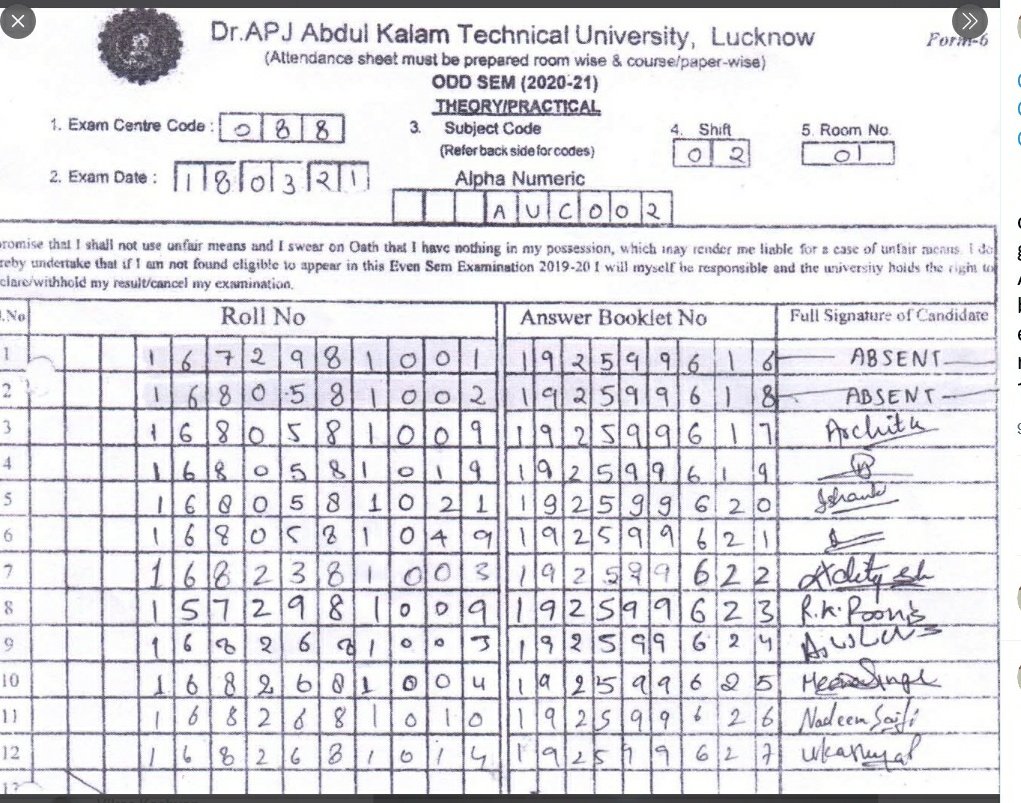 Dr.APJ Abdul Kalam Technical University, Lucknow
Form-6
(Attendance sheet must be prepared room wise & course/paper-wise)
ODD SEM (2020-21)
THEORY/PRACTICAL
1. Exam Centre Code : 088
3. Subject Code
(Refer back side for codes)
4. Shift
02
5. Room No.
01
2. Exam Date : 180321
Alpha Numeric
AUC002
romise that I shall not use unfair means and I swear on Oath that I have nothing in my possession, which may render me liable for a case of unfair means. I do
reby undertake that if I am not found eligible to appear in this Even Sem Examination 2019-20 I will myself be responsible and the university holds the right to
clare/withhold my result/cancel my examination.
.No Roll No Answer Booklet No Full Signature of Candidate
1 1672981001 192599616 ABSENT
2 1680581002 192599618 ABSENT
3 1680581009 192599617 Archita
4 1680581019 192599619
5 1680581021 192599620 Ishank
6 1680581049 192599621
7 1682381003 192599622
8 1572981009 192599623 R.K.Poonis
9 1682681003 192599624
10 1682681004 192599625
11 1682681010 192599626 Nadeem Saifi
12 1682681014 192599627